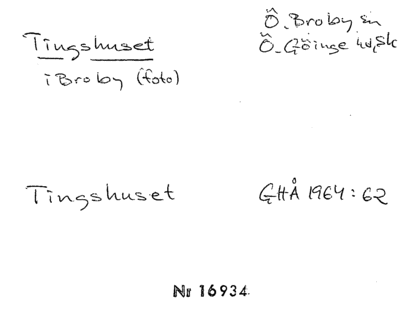 Tingshuset
i Broby (foto)
Ö. Broby sn
Ö. Göinge hd, Sk
Tingshuset
GHÅ 1964:62
Nr 16934.